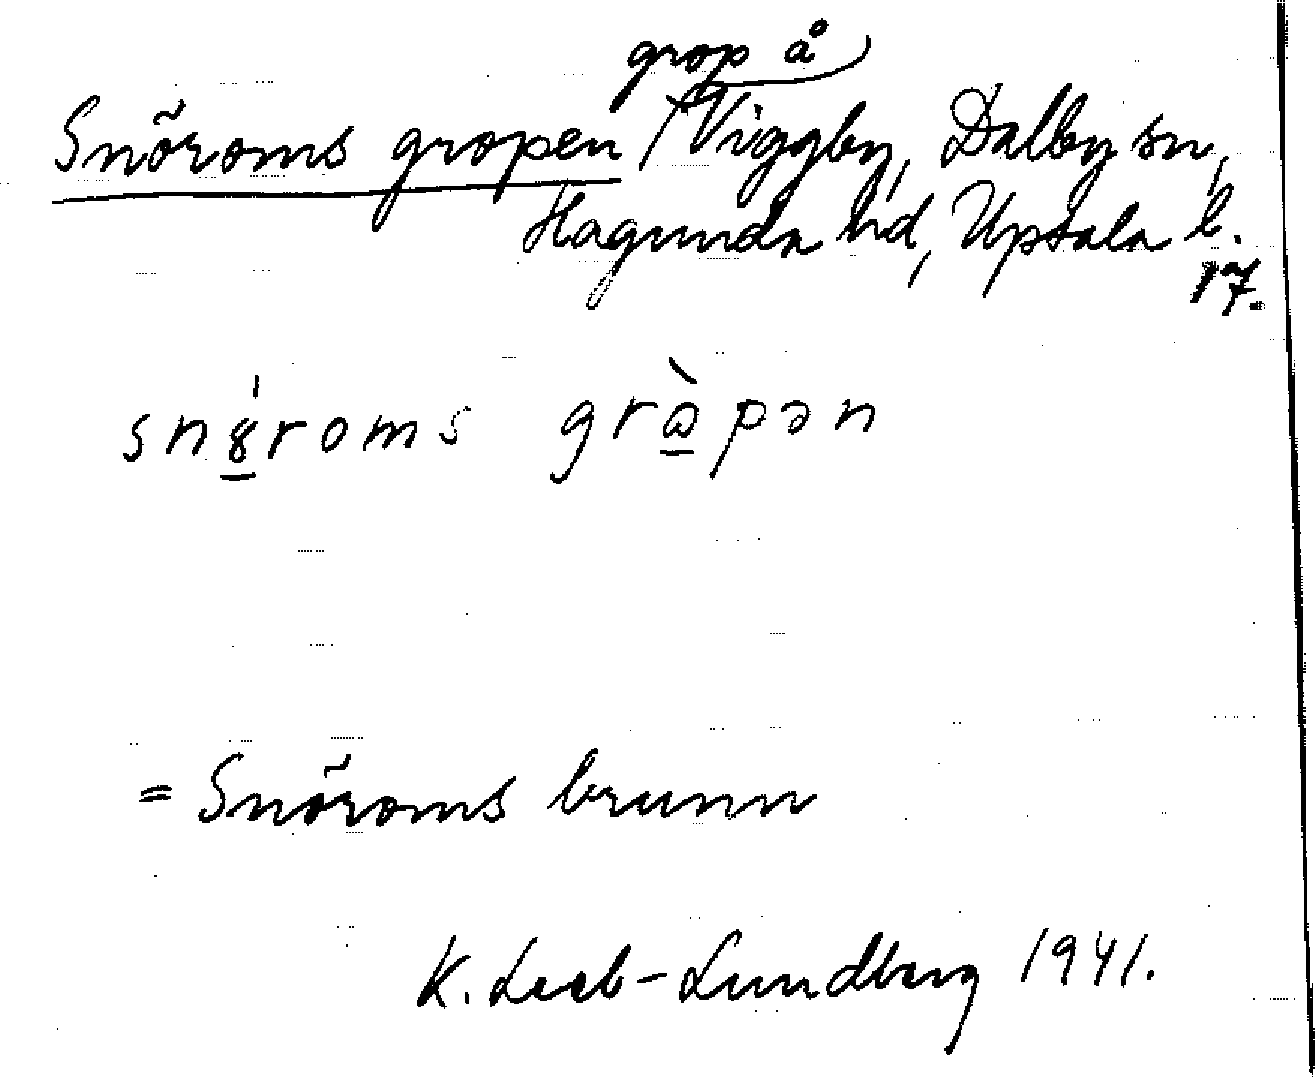 grop å
Snöroms gropen / Viggby, Dalby sn,
Hagunda hd, Upsala l.
17.
sn8́roms grὼpən
= Snöroms brunn
K. Leeb-Lundberg 1941.